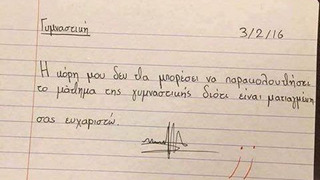 Γυμναστική 3/2/16
Η κόρη μου δεν θα μπορέσει να παρακολουθήσει
το μάθημα της γυμναστικής διότι είναι ματιαγμένη
σας ευχαριστώ.